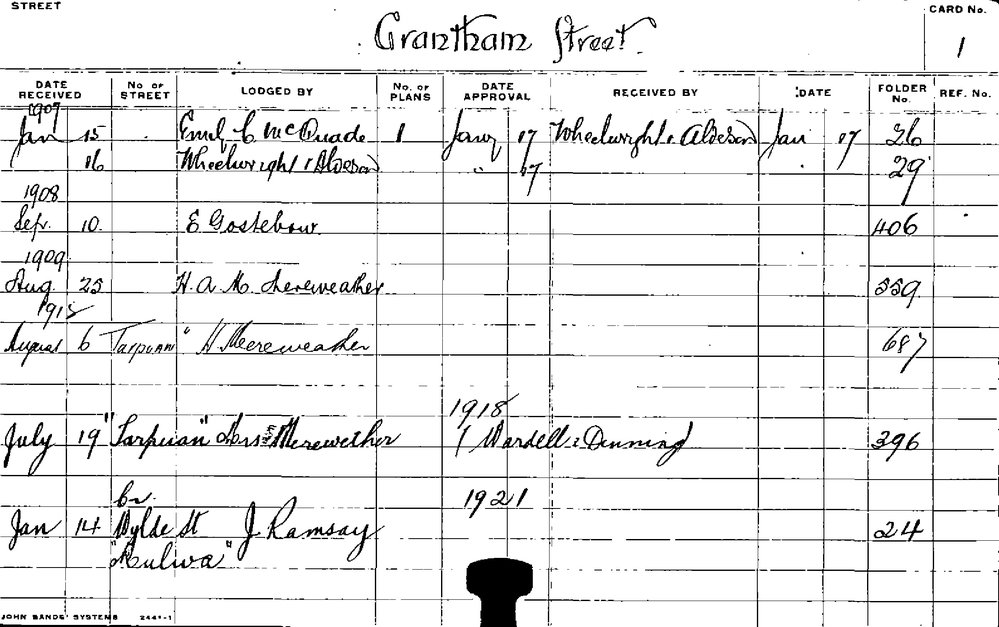 STREET
CARD No.
Grantham Street.
1
DATE RECEIVED No OF STREET LODGED BY No. OF PLANS DATE APPROVAL RECEIVED BY DATE FOLDER No. REF. No.
1907
Jan 15 Emily C McQuade 1 Jany 17 Wheelwright & Alderson Jan 17 26
16 Wheelwright & Alderson " 17 29
1908
Sep. 10. E Gostelow. 406
1909
Aug 25 H. A. M. Mereweather 559
August 6 " H Mereweather 687
1918
July 19 "Tarpuan" Mrs Merewether ( Wardell & Denning) 396
cr. 1921
Jan 14 Wylde St J. Ramsay 24
JOHN SANDS' SYSTEMS 2441-1